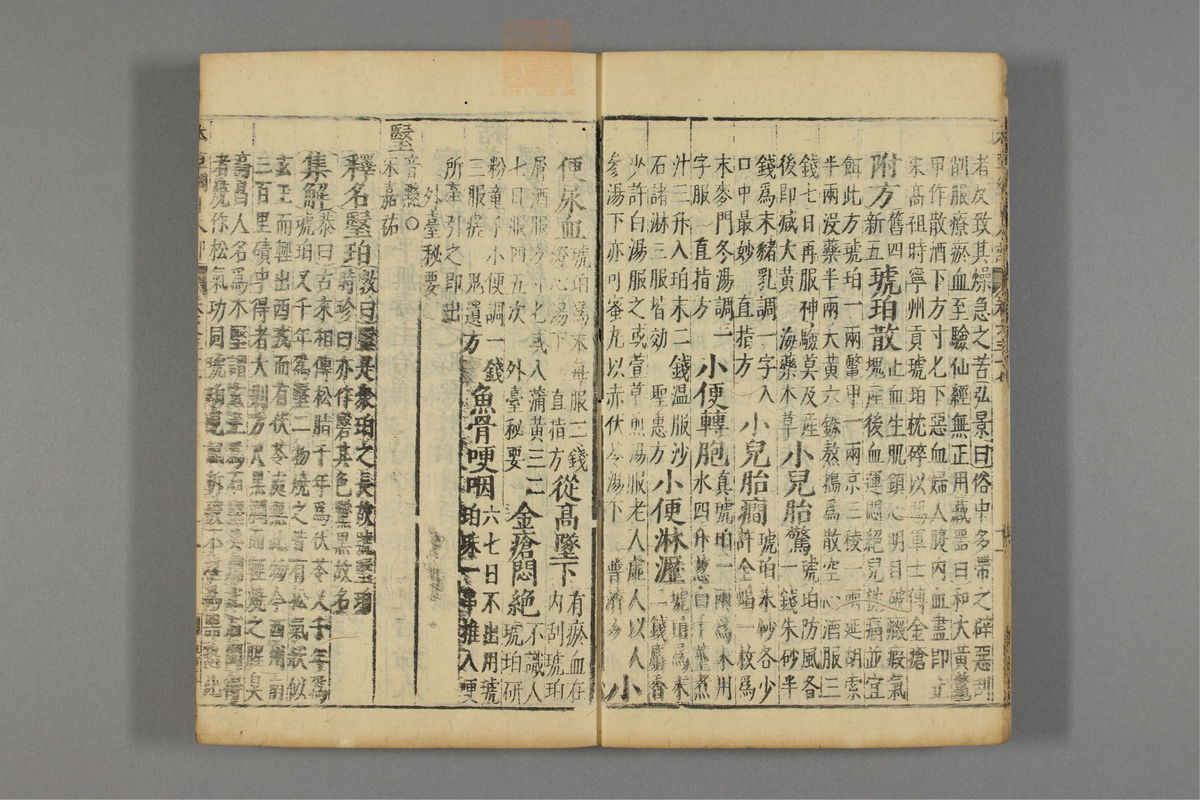 者反致其燥急之苦弘景曰俗中多帶之辟惡刮
削服療瘀血至驗仙經無正用藏器曰和大黄鱉
甲作散酒下方寸匕下惡血婦人腹内血盡即止
宋髙祖時寧州貢琥珀枕碎以賜軍士傅金瘡
附方舊四新五琥珀散止血生肌鎮心明目破癥瘕氣
塊產後血運悶絶兒枕痛並宜
餌此方琥珀一兩鱉甲一兩京三稜一兩延胡索
半兩没藥半兩大黄六銖熬搗爲散空心酒服三
錢七日再服神驗莫及產
後即减大黄 海藥本草小兒胎驚琥珀防風各一錢朱砂半
錢爲末豬乳調一字入
口中最妙 直指方小兒胎癎琥珀朱砂各少許全蝎一枚爲
末麥門冬湯調一
字服 直指方小便轉胞真琥珀一兩爲末用水四升葱白十莖煮
汁三升入珀末二錢温服沙
石諸淋三服皆効 聖惠方小便淋瀝琥珀爲末二錢麝香
少許白湯服之或萱草煎湯服老人虚人以人
參湯下亦可蜜丸以赤伏苓湯下 普濟方小
便尿血琥珀爲末每服二錢
燈心湯下 直指方從髙墜下有瘀血在内刮琥珀
屑酒服方寸匕或入蒲黄三二
七日服四五次 外臺秘要金瘡悶絶不識人琥珀研
粉童子小便調一錢
三服瘥 鬼遺方魚骨哽咽六七日不出用琥珀珠一串推入哽
所牽引之即出
外臺秘要
瑿
音黳○
宋嘉祐
釋名瑿珀時珍曰亦作黳其色黳黑故名
斅曰瑿是衆珀之長故號瑿珀
集解恭曰古來相傳松脂千年爲伏苓又千年爲
琥珀又千年爲瑿二物燒之皆有松氣狀似
玄玉而輕出西戎而有伏苓處無此物今西州南
三百里磧中得者大則方尺黑潤而輕燒之腥臭
髙昌人名爲木瑿謂玄玉爲石瑿洪州土石間得
者燒作松氣功同琥珀見風拆破不堪爲器恐此